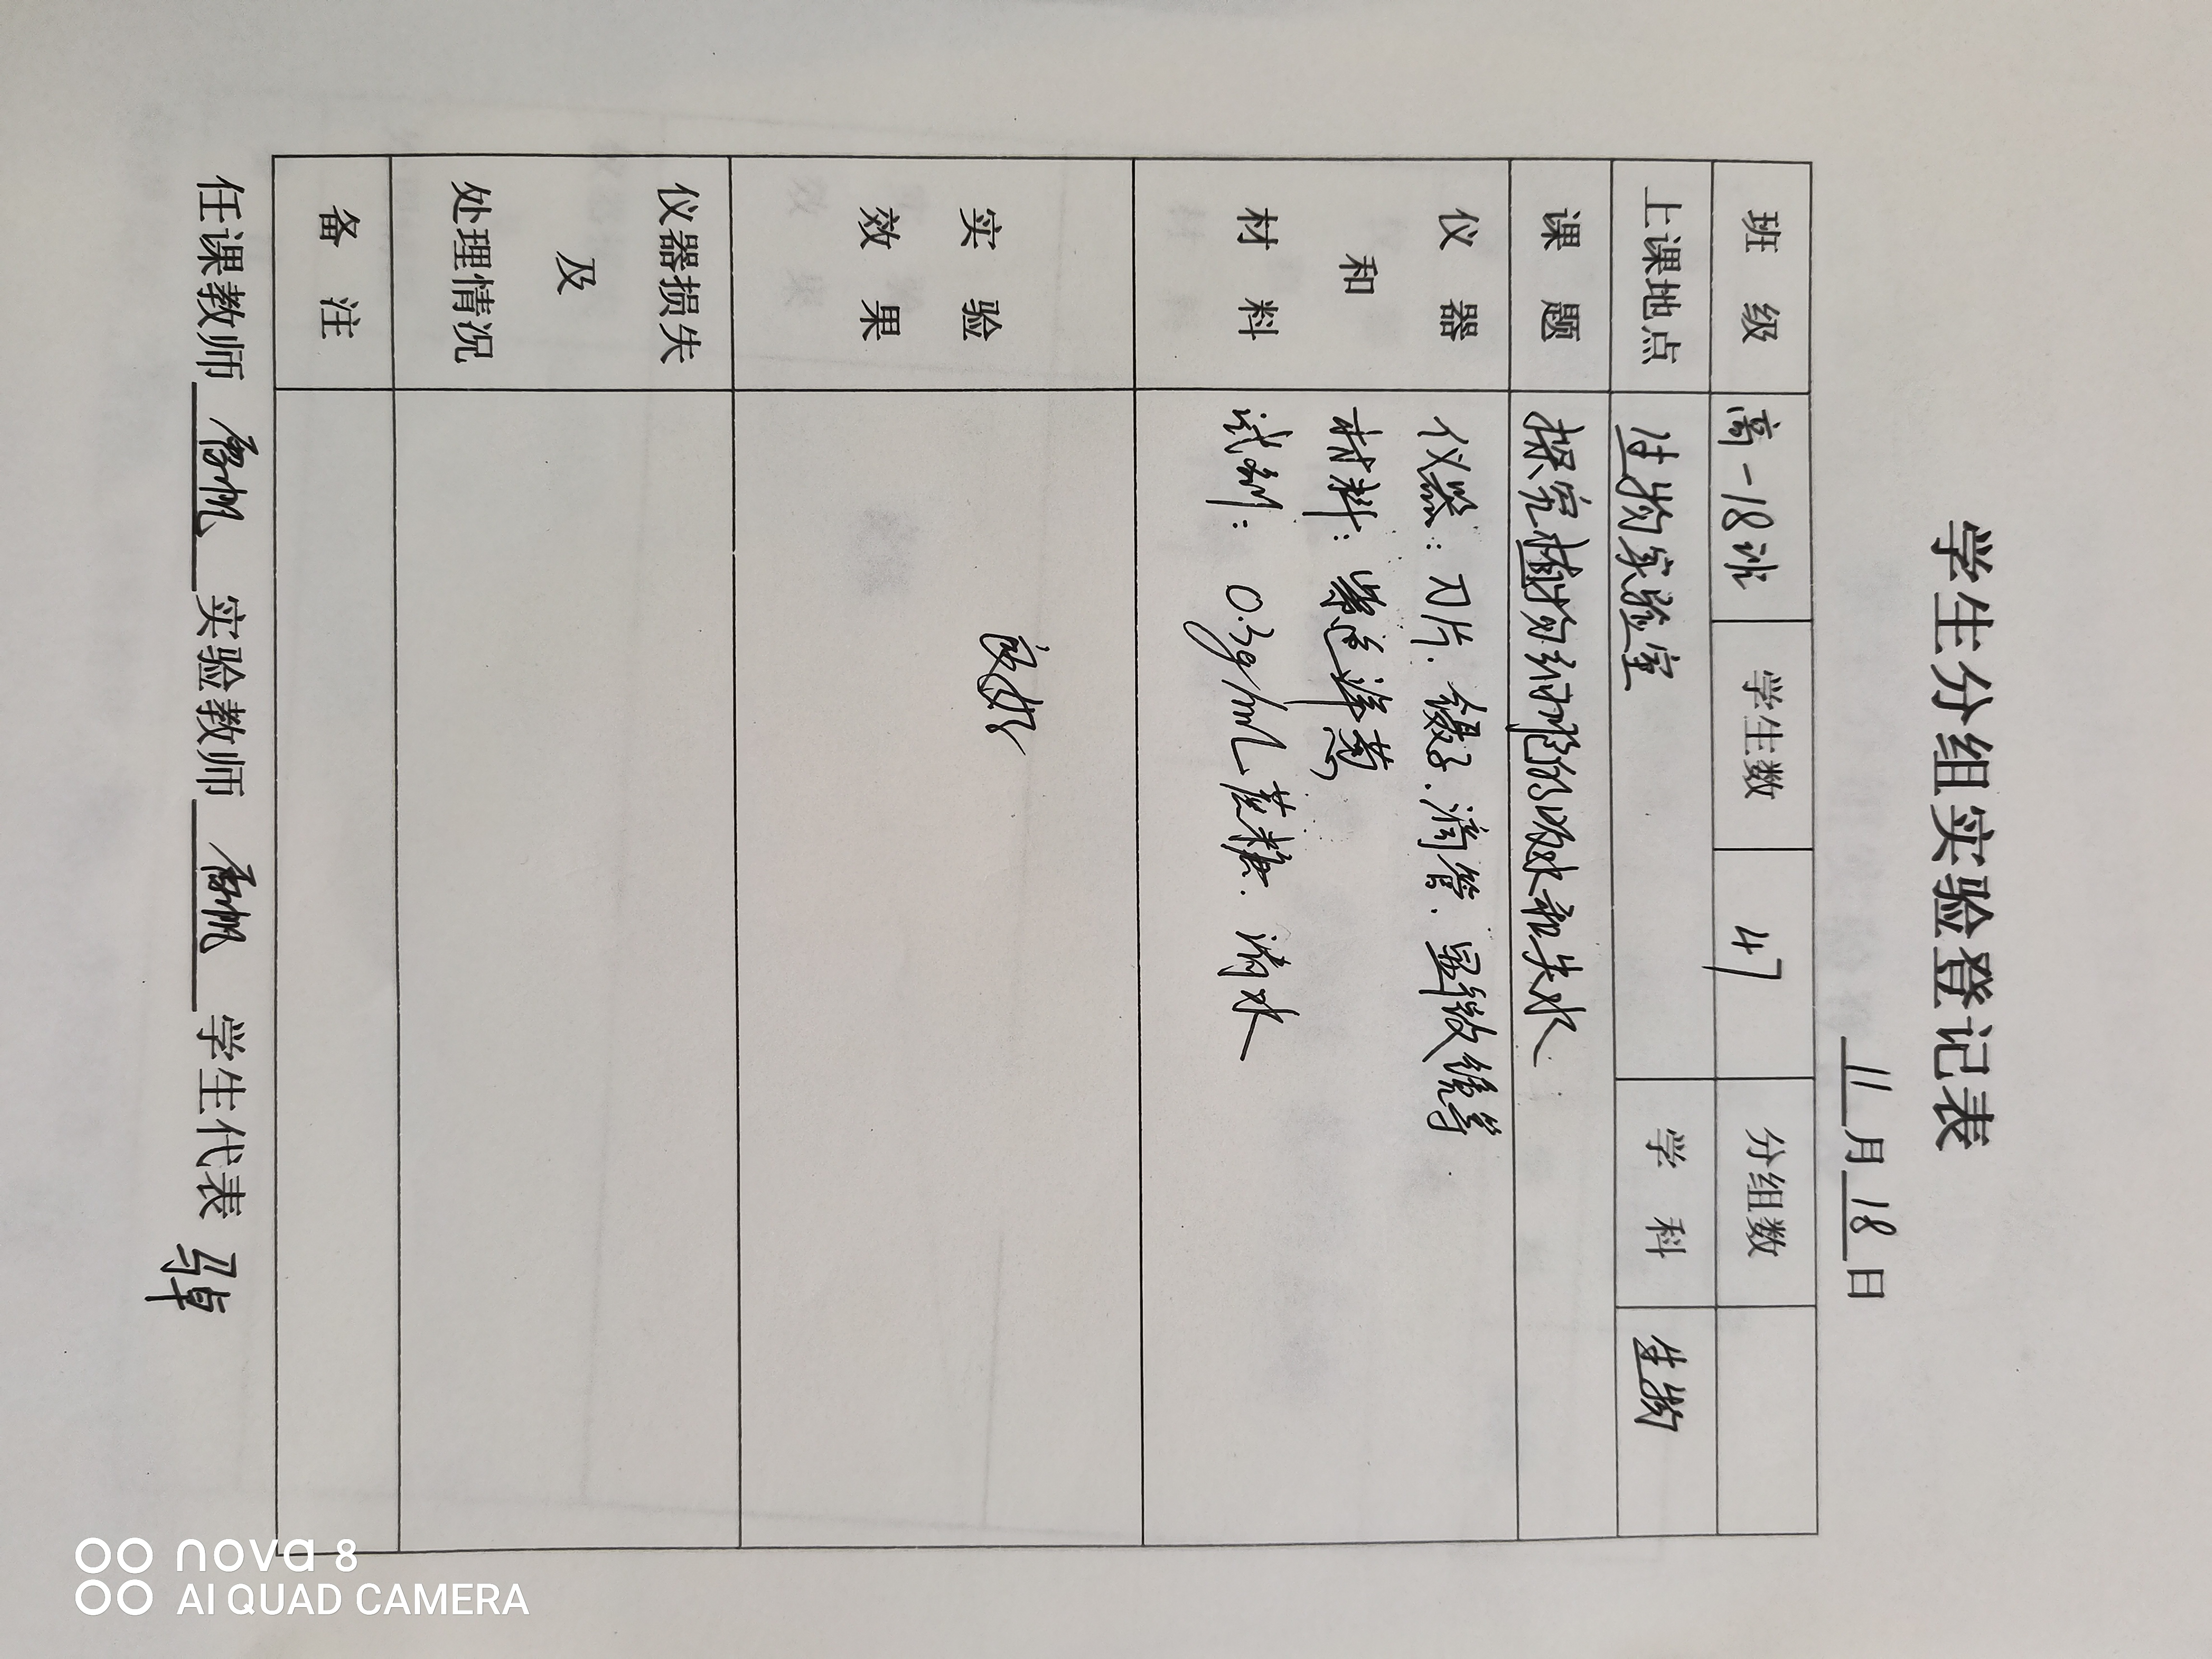 学生分组实验登记表
11月18日
班级 高一18班 学生数 47 分组数
上课地点 生物实验室 学科 生物
课题 探究植物细胞的吸水和失水
仪器和材料
仪器：刀片、镊子、滴管、显微镜等
材料：紫色洋葱
试剂：0.3g/mL蔗糖、清水
实验效果 良好
仪器损失及处理情况
备注
任课教师 实验教师 学生代表 马卓
nova 8
AI QUAD CAMERA